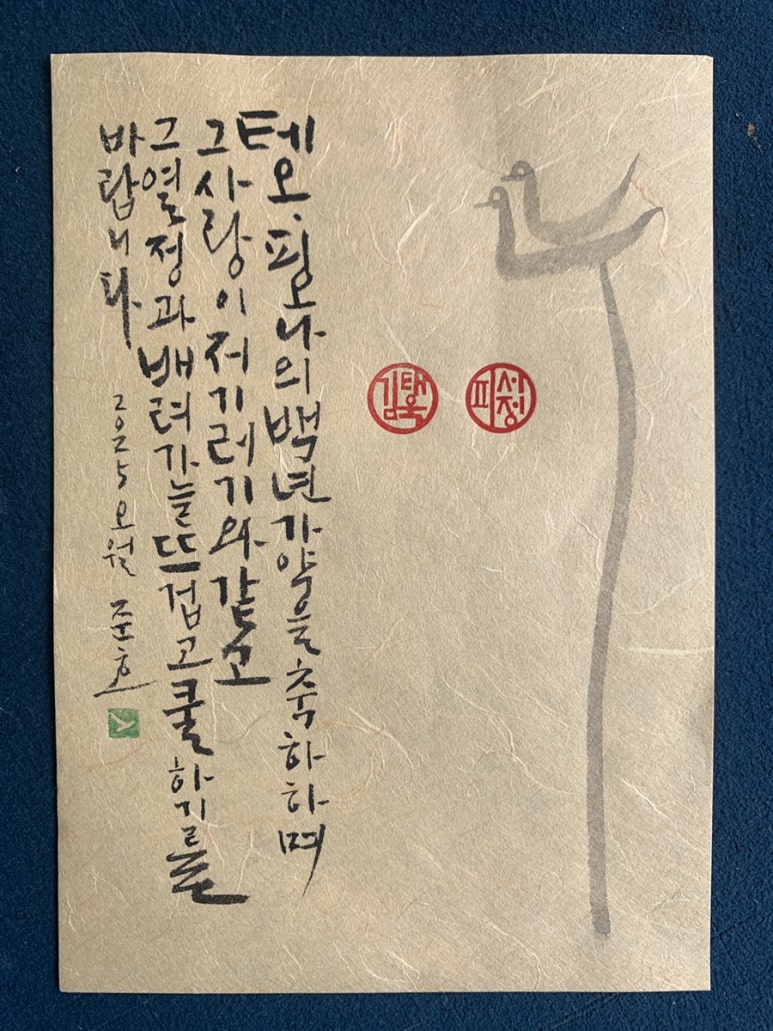 테오·피오나의 백년가약을 축하하며
그 사랑이 저 기러기와 같고
그 열정과 배려가 늘 뜨겁고 쿨하기를
바랍니다
2025 오월 준호
김태옥